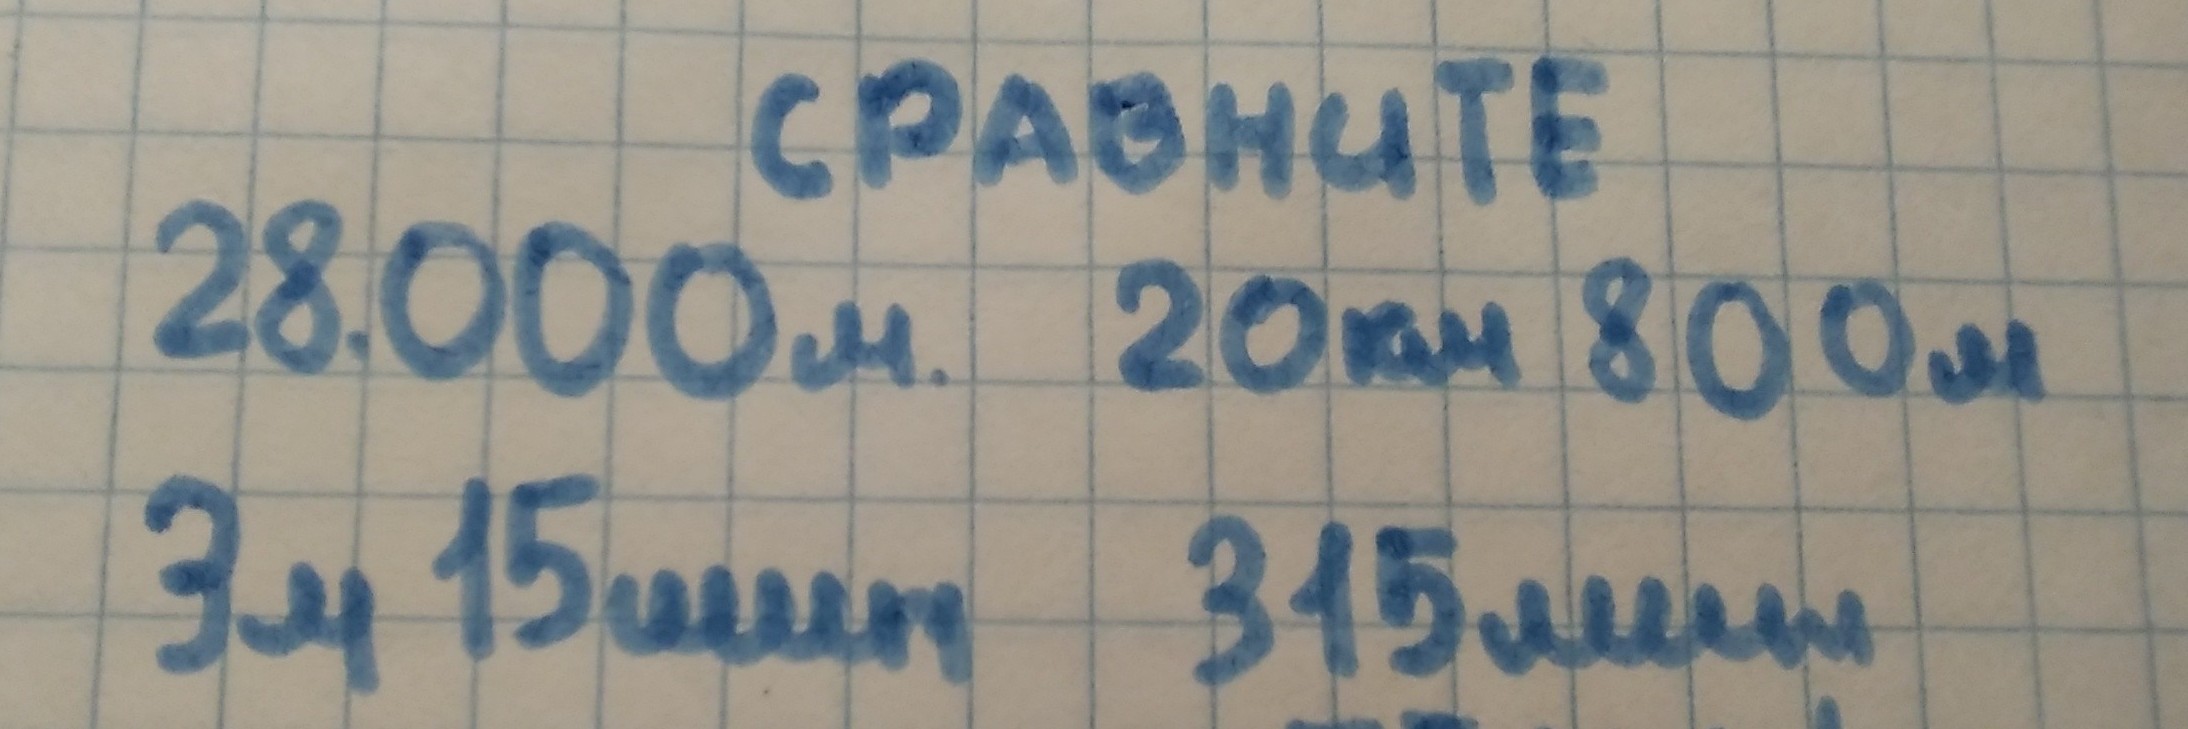 СРАВНИТЕ
28.000м. 20км 800м
3м 15мин 315мин